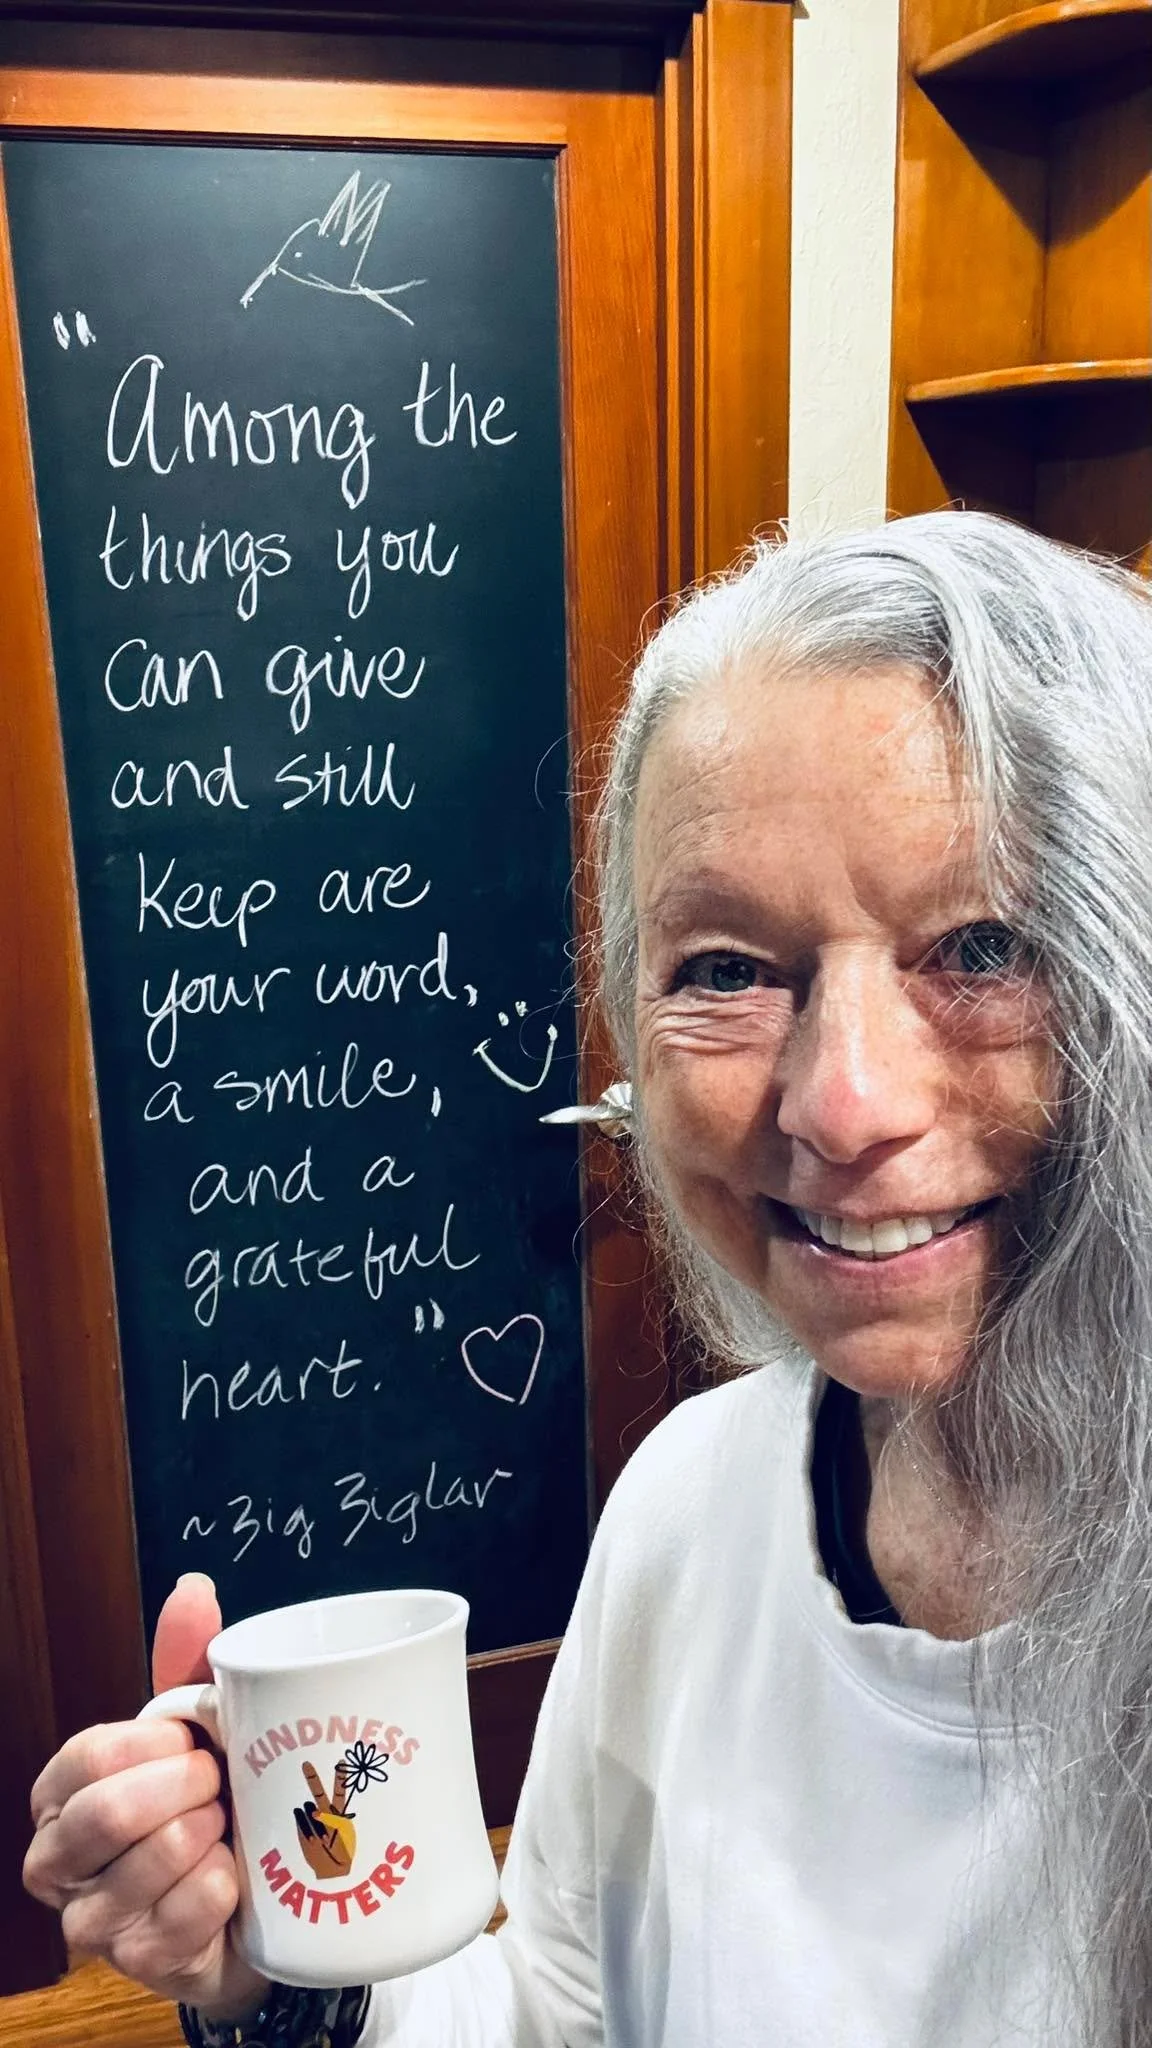 "Among the
things you
can give
and still
Keep are
your word,
a smile,
and a
grateful
heart."
~Zig Ziglar
KINDNESS
MATTERS